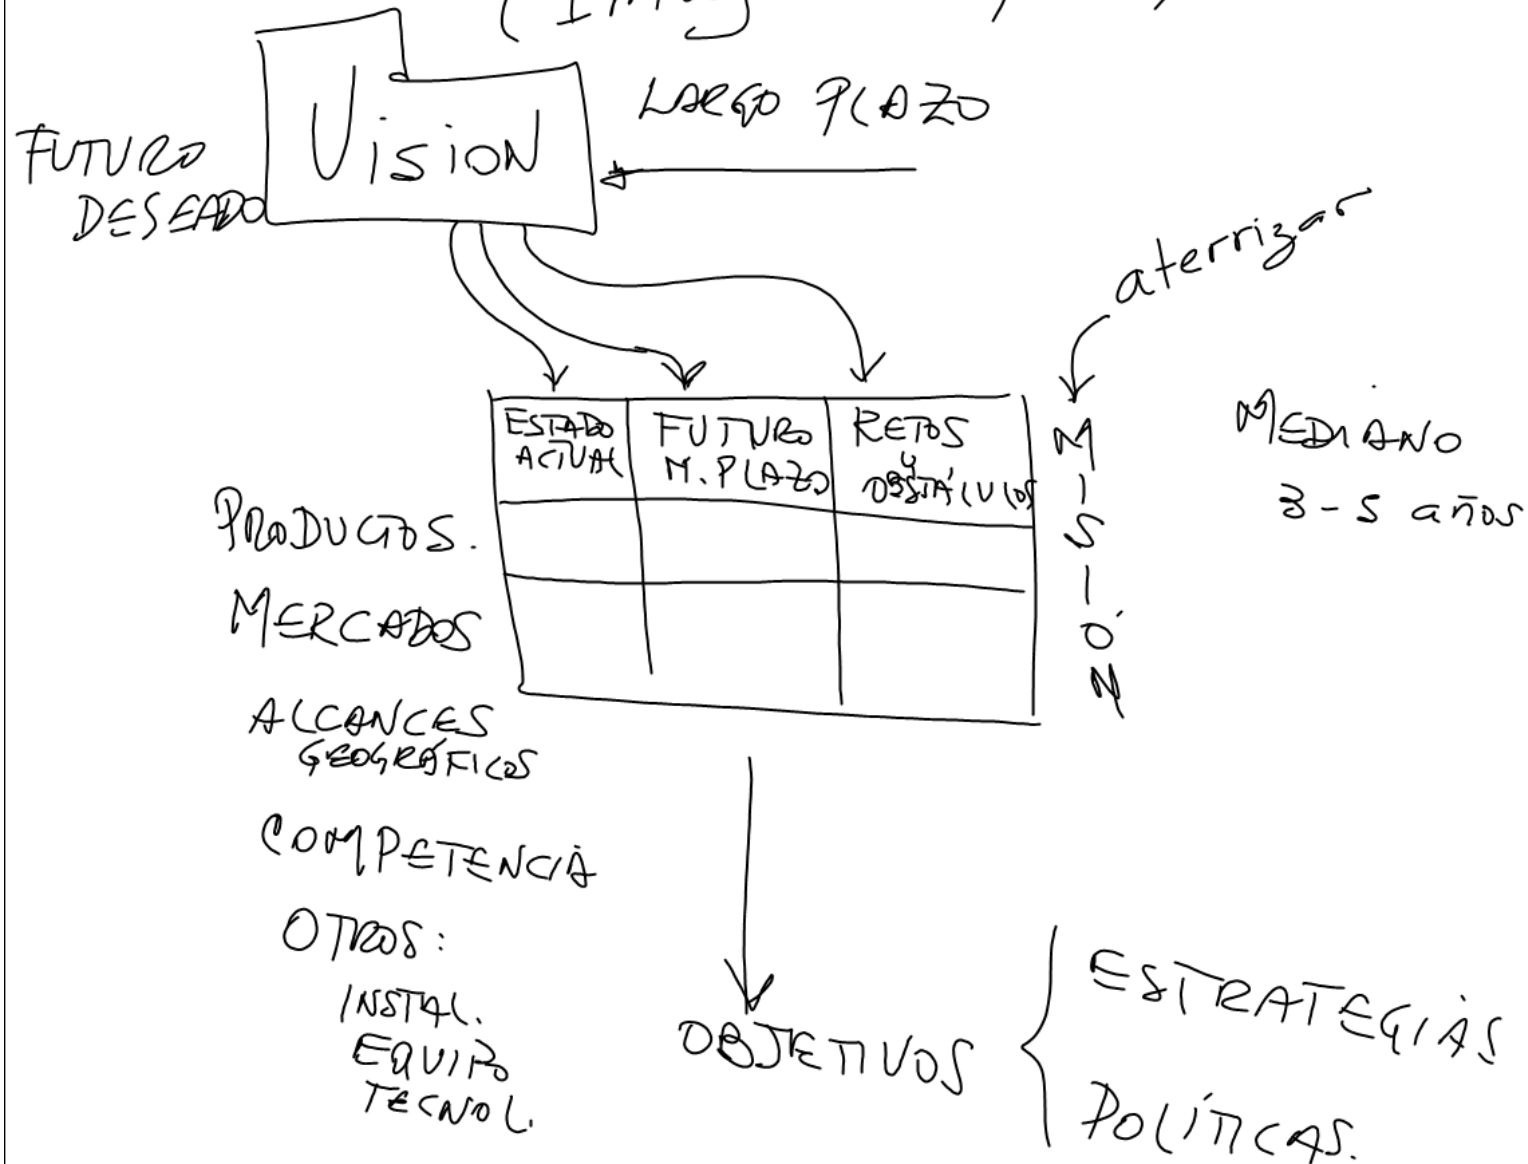 LARGO PLAZO
VisioN
FUTURO
DESEADO
aterrizar
ESTADO
ACTUAL
FUTURO
M. PLAZO
RETOS
y
OBSTÁCULOS
MISIÓN
MEDIANO
3-5 años
PRODUCTOS.
MERCADOS
ALCANCES
GEOGRÁFICOS
COMPETENCIA
OTROS:
INSTAL.
EQUIPO
TECNOL.
OBJETIVOS
ESTRATEGIAS
POLÍTICAS.